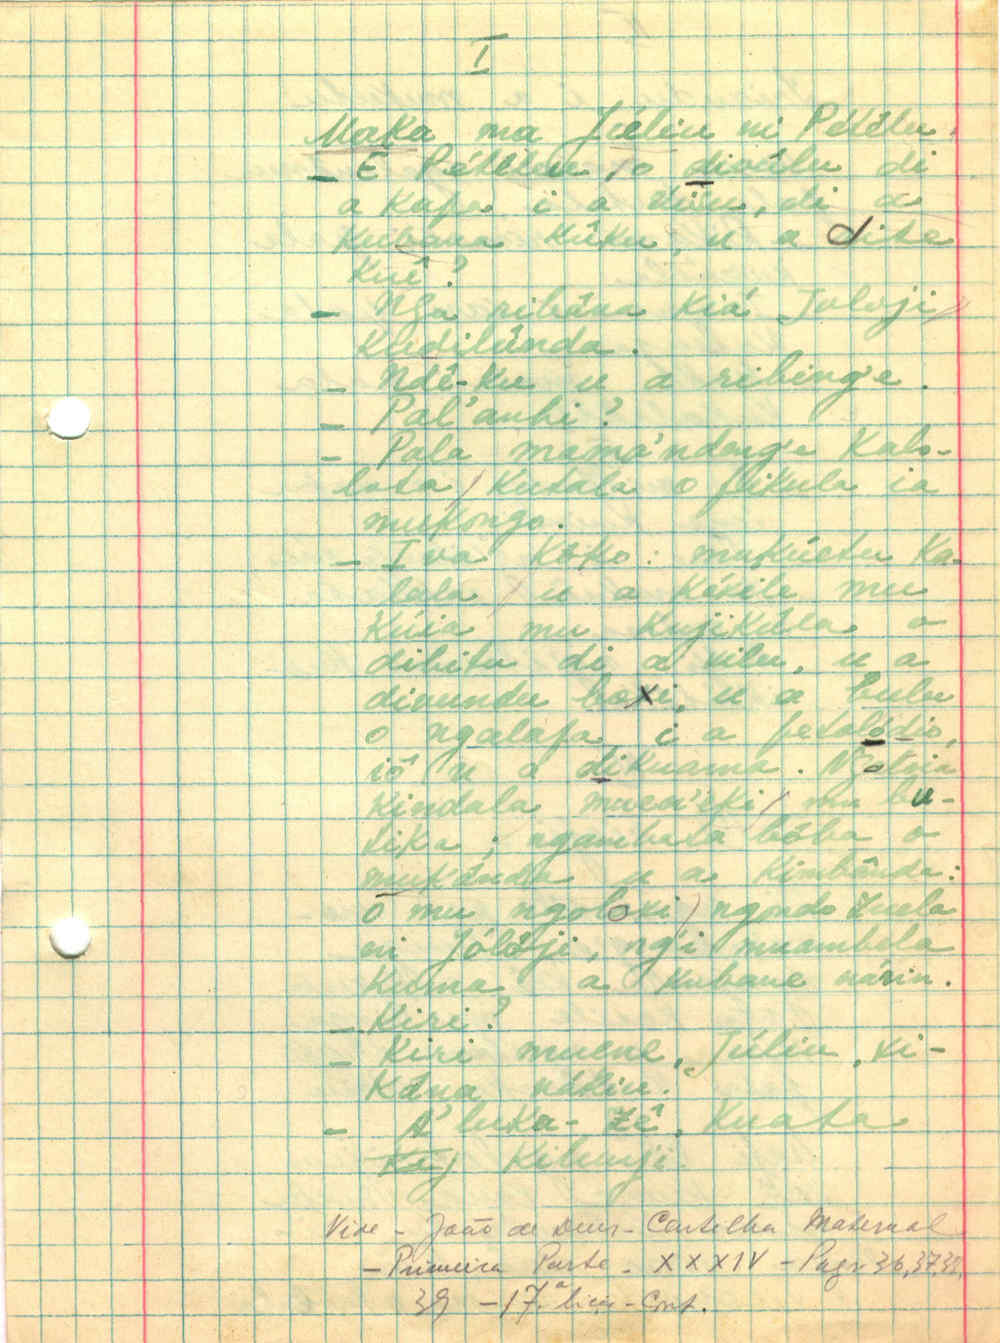 I
Maka ma Júliu ni Pétélu.
- E Pétélu, o divúlu di
a Kufu i a viôu, di a
Kubana Kúku, u a dita
Kuê?
- Nga ribâna Kiá Joloji
Kudilônda.
- Ndê-Ku u a ribinge.
- Pal'anhi?
- Pala mamá'ndenge Kalo-
lata, Kutala o fikula ia
mukongo.
- Iva Koko: mukúetu Ka-
lala, u a Késéle mu
Kúia mu Kujikúla o
dibitu di a vilu, u a
divundu boxi, u a bulu
o ngalafa i a petolólio,
iô u a dikuama. Ngoloia
Kindala muen'iki, mu bu-
tika; ngambata bóba o
mukánda u a Kimbânda:
O mu ngoloxi, ngondo zuela
ni Jóloji, ngi muambela
Kuma a Kubane náriu.
- Kiri?
- Kiri muene, Júliu, xi-
Kána náliu.
- A'luka-Zê, Kuata
Kilunji.
Vide - João de Deus - Cartilha Maternal
- Primeira Parte - XXXIV - Pags 36, 37, 38,
39 - 17.ª lição - Cont.